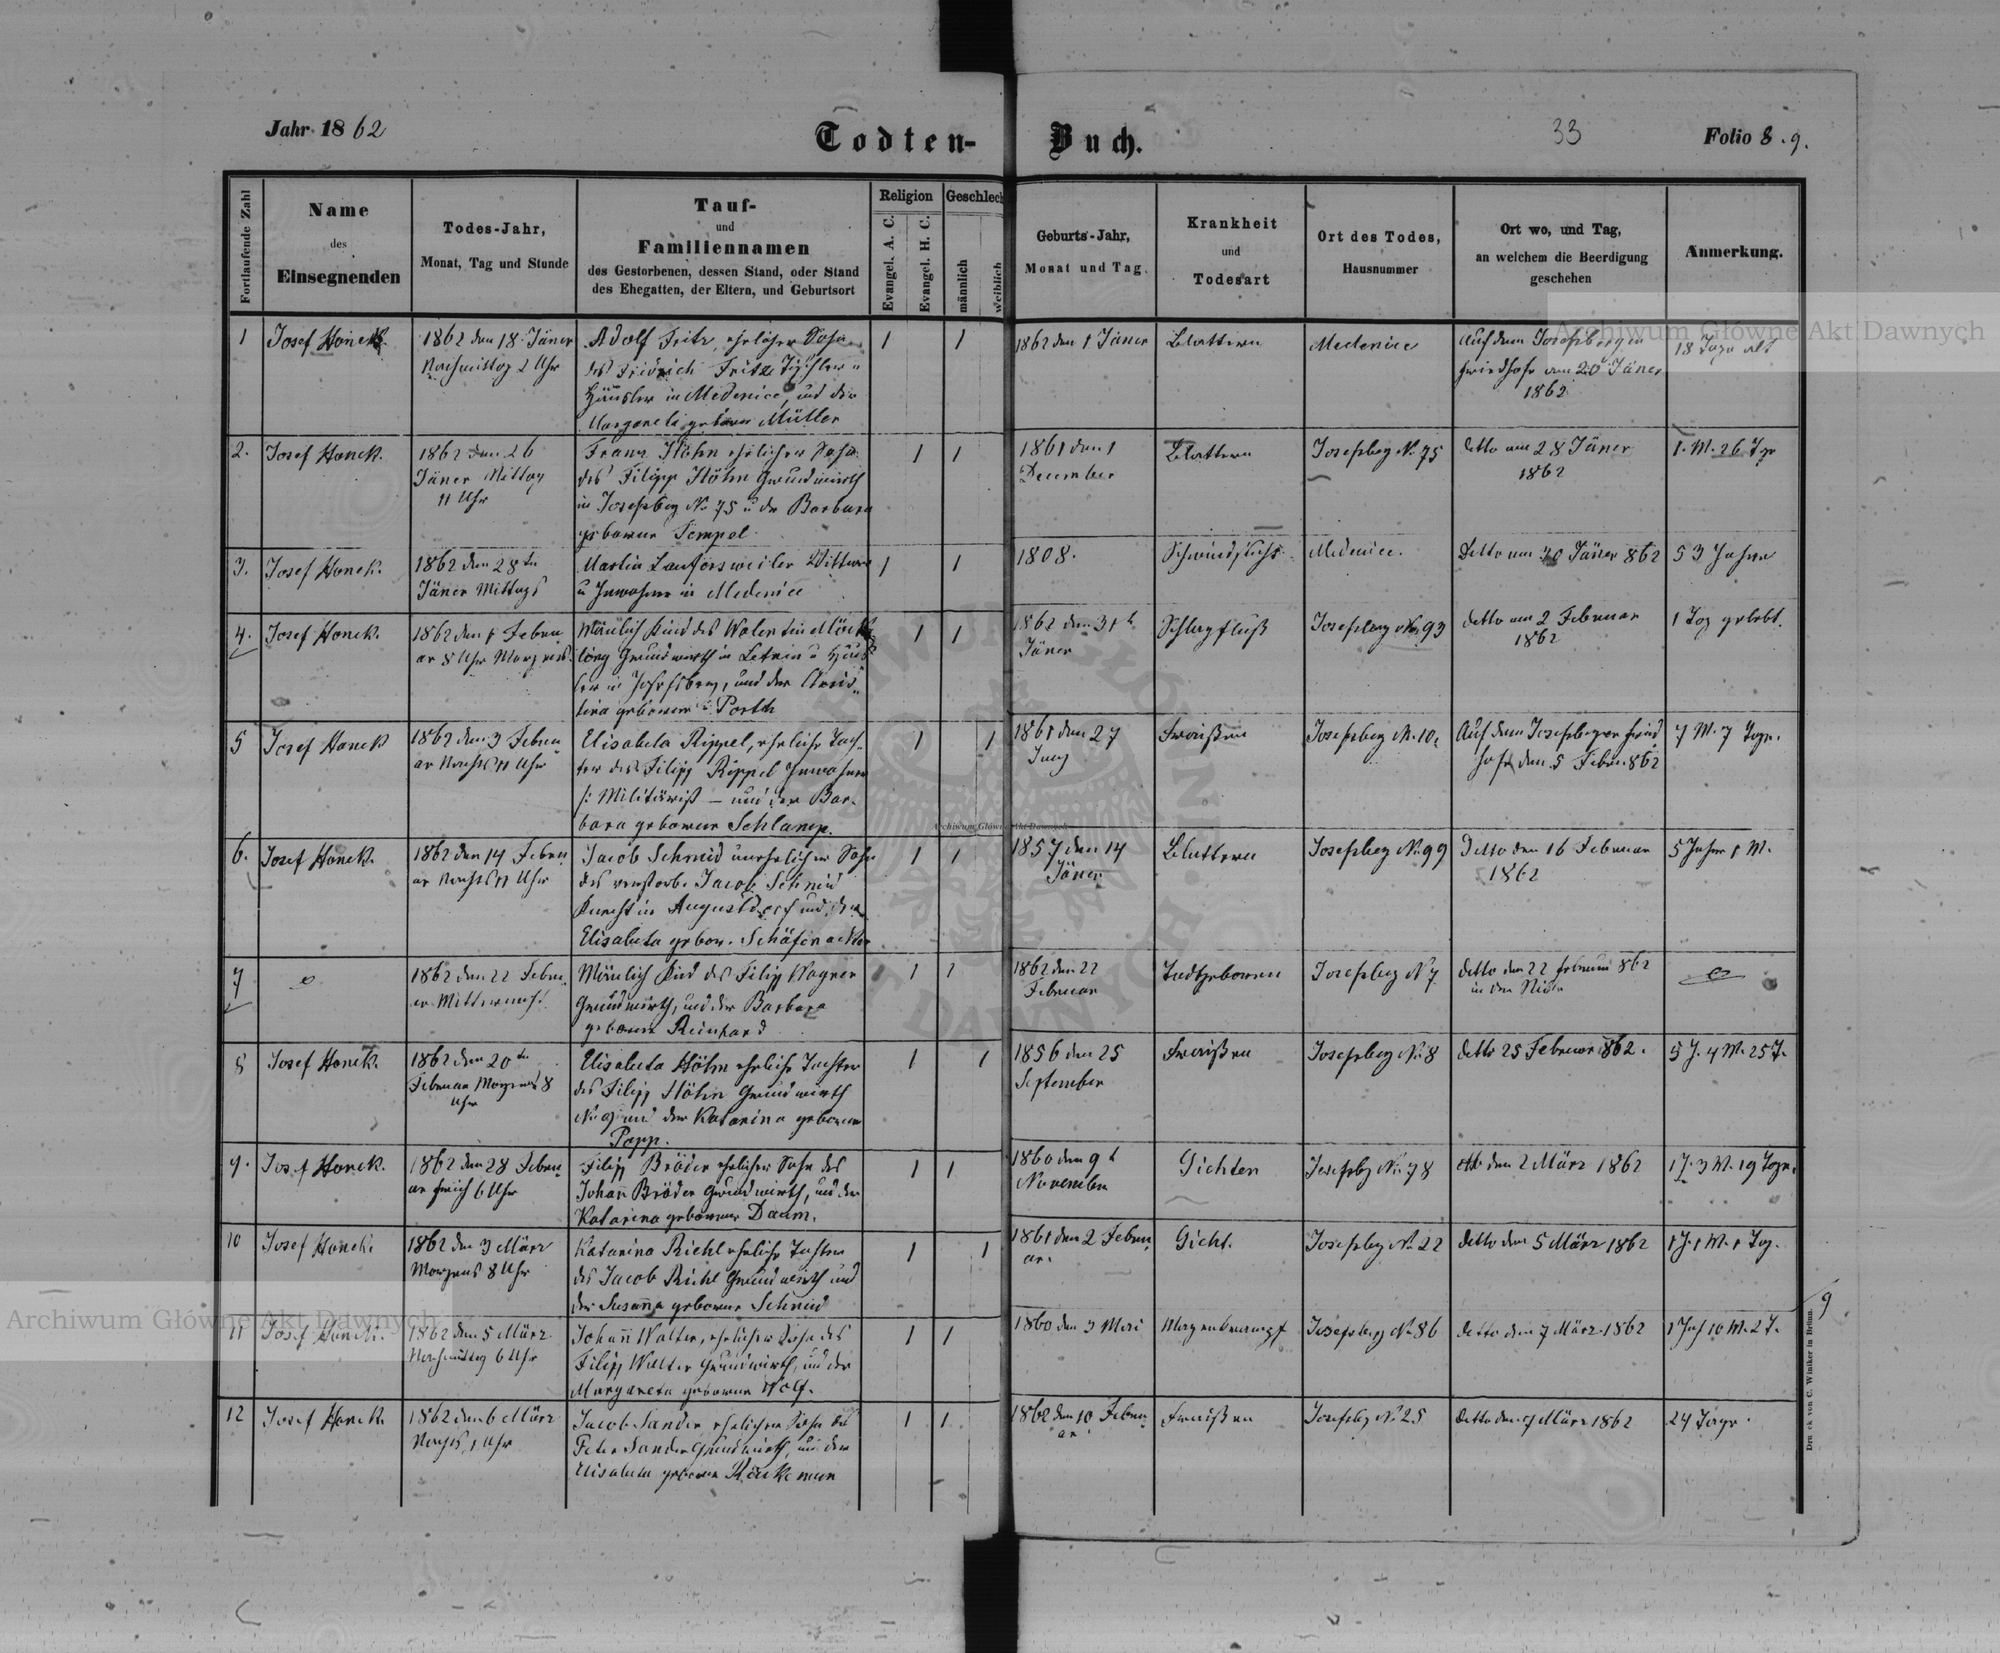 Jahr 1862
Todten-Buch.
33
Folio 8.9.
Fortlaufende Zahl
Name
des
Einsegnenden
Todes-Jahr,
Monat, Tag und Stunde
Tauf-
und
Familiennamen
des Gestorbenen, dessen Stand, oder Stand
des Ehegatten, der Eltern, und Geburtsort
Religion
Evangel. A. C.
Evangel. H. C.
Geschlech
männlich
weiblich
Geburts-Jahr,
Monat und Tag.
Krankheit
und
Todesart
Ort des Todes,
Hausnummer
Ort wo, und Tag,
an welchem die Beerdigung
geschehen
Anmerkung.
1
Josef Honek.
1862 den 18. Jäner
Nachmittag 2 Uhr
Adolf Fritz, ehelicher Sohn
des Fridrich Fritz Tischler u
Häusler in Medenice, und der
Margareta geborne Müller
1
1
1862 den 1 Jäner
Blattern
Medenice
Auf dem Josephberger
Friedhofe am 20 Jäner
1862
18 Tage alt
2.
Josef Honek.
1862 den 26
Jäner Mittag
11 Uhr
Franz Höhn ehelicher Sohn
des Filipp Höhn Grundwirth
in Josephbg No 75 u der Barbara
geborne Tempel.
1
1
1861 den 1
December
Blattern
Josephbg No. 75
detto am 28 Jäner
1862
1. M. 26 Tge
3.
Josef Honek.
1862 den 28ten
Jäner Mittags
Martin Laufersweiler Wittwer
u Inwohner in Medenice
1
1
1808.
Schwindsucht
Medenice.
Detto am 30 Jäner 862
53 Jahre
4.
Josef Honek.
1862 den 1 Febru
ar 8 Uhr Morgens
Mänlich Kind des Walentin
Grundwirth in u Häus
ler in Josephsberg, und der Chris-
tina geborene Porth
1
1
1862 den 31t
Jäner
Schlagfluß
Josephbg No. 93
detto am 2 Februar
1862
1 Tag gelebt.
5
Josef Honek
1862 den 3 Febru
ar Nachts 11 Uhr
Elisabeta Rippel, eheliche Toch-
ter des Filipp Rippel Inwohner
und der Bar-
bara geborne Schlamp.
1
1
1861 den 27
Juny
Fraißen
Josephbg No. 10
Auf dem Josephberger Fried
hofe den 5 Febr. 862
7 M. 7 Tage.
6.
Josef Honek.
1862 den 14 Febru
ar Nachts 11 Uhr
Jacob Schmid unehelicher Sohn
des verstorb. Jacob Schmid
Knecht in Augustdorf und der
Elisabeta gebor.
1
1
1857 den 14
Jäner
Blattern
Josephbg No. 99
Detto den 16 Februar
1862
5 Jahre 1 M.
7
1862 den 22 Febru
ar Mitternacht
Mänlich Kind des Filipp Wagner
Grundwirth, und der Barbara
geborne Reinhard
1
1
1862 den 22
Februar
Todtgeboren
Josephbg No 7
detto den 22 Februar 862
8
Josef Honek.
1862 den 20ten
Februar Morgens 8
Uhr
Elisabeta Höhn eheliche Tochter
des Filipp Höhn Grundwirth
und der Katarina geborene
Popp.
1
1
1856 den 25
September
Fraißen
Josephbg No. 8
detto 25 Februar 1862.
5 J. 4 M. 25 T.
9.
Josef Honek.
1862 den 28 Febru
ar früh 6 Uhr
Filipp Bröder ehelicher Sohn des
Johan Bröder Grundwirth, und der
Katarina geborene Daum.
1
1
1860 den 9t
November
Gichten
Josephbg No. 78
detto den 2 März 1862
1 J. 3 M. 19 Tage.
10
Josef Honek.
1862 den 3 März
Morgens 8 Uhr
Katarina Richl eheliche Tochter
des Jacob Richl Grundwirth und
der Susanna geborne Schmid
1
1
1861 den 2 Febru
ar.
Gicht.
Josephbg No. 22
detto den 5 März 1862
1 J. 1 M. 1 Tag.
11
Josef Honek.
1862 den 5 März
Nachmittag 6 Uhr
Johann Walter, ehelicher Sohn des
Filipp Walter Grundwirth, und der
Margareta geborne Wolf.
1
1
1860 den 3 Mai
Magenkrampf
Josephbg No. 86
detto den 7 März 1862
1 Jah 10 M. 2 T.
12
Josef Honek.
1862 den 6 März
Nachts 1 Uhr
Jacob Sander ehelicher Sohn des
Peter Sander Grundwirth, und der
Elisabeta geborne
1
1
1862 den 10 Febru
ar
Fraißen
Josephbg No. 25
detto den 7 März 1862
24 Tage.
9
Druck von C. Winiker in Brünn.
Archiwum Główne Akt Dawnych
Archiwum Główne Akt Dawnych
Archiwum Główne Akt Dawnych